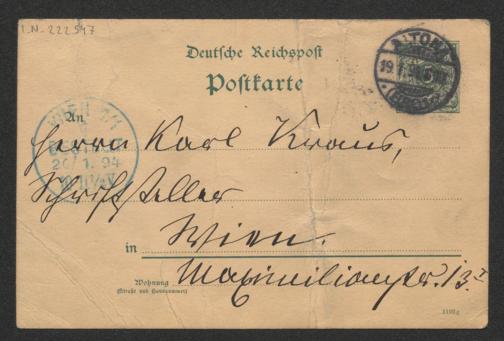 I.N. 222.547
Deutsche Reichspost
Postkarte
ALTONA
19.1.94
An
Herrn Karl Kraus,
WIEN 1/1
BESTELLT
20.1.94
Schriftsteller
in Wien.
Maximilianstr. 13.
Wohnung
(Straße und Hausnummer)